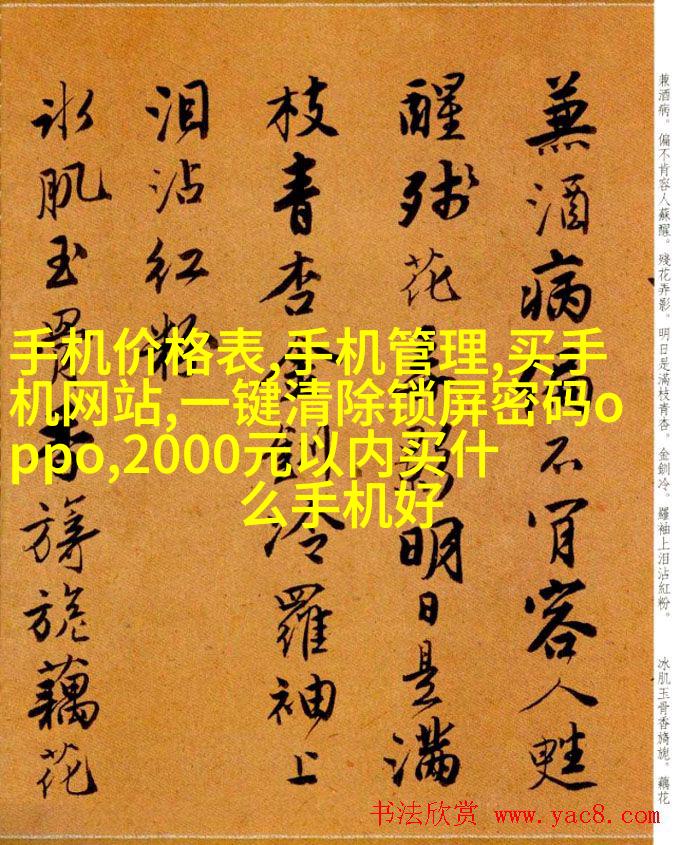 兼酒病。偏不肯容人蘇醒。殘花弄影。明日是滿枝青杏。金釧冷。羅袖上泪沾紅粉。
冰肌玉骨香旖旎。藕花
兼酒病偏不肯容人甦
醒殘花弄影明日是滿
枝青杏金釧冷羅袖上
泪沾紅粉
冰肌玉骨香旖旎藕花
手机价格表,手机管理,买手
机网站,一键清除锁屏密码o
ppo,2000元以内买什
么手机好
书法欣赏 www.yac8.com